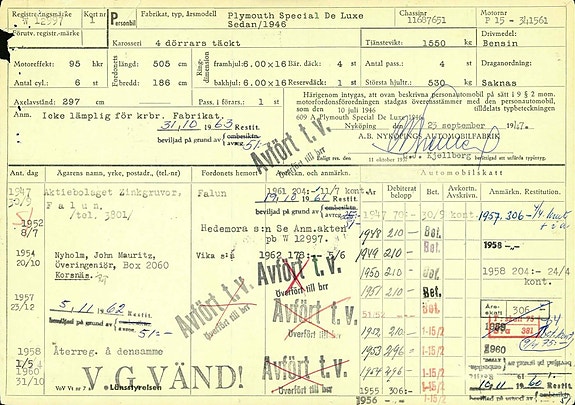 Registreringsmärke
W 12997
Kort nr
1
Personbil
Fabrikat, typ, årsmodell
Plymouth Special De Luxe
Sedan/1946
Chassinr
11687651
Motornr
P 15 - 341561
Förutv. reg.-märke
Karosseri 4 dörrars täckt
Tjänstevikt: 1550 kg
Drivmedel:
Bensin
Motoreffekt: 95 hkr
Fordonets
längd: 505 cm
Ringdimension
framhjul: 6.00x16 Bär. däck: 4
Ant. pass.: 4
Draganordning:
Antal cyl.: 6 st
bredd: 186 cm
bakhjul: 6.00x16 Reservdäck: 1
Största hjultr.: 530 kg
Saknas
Axelavstånd: 297 cm
Pass. i förars.: 1 st
Härigenom intygas, att ovan beskrivna personautomobil på sätt i 9 § 2 mom.
motorfordonsförordningen stadgas överensstämmer med den personautomobil,
som den 10 juli 1946 undergått typbesiktning
609 A. Plymouth Special De Luxe 1946
Anm. Icke lämplig för krbr. Fabrikat.
31.10 1963 Restit.
beviljad på grund av
51:-
Avfört t.v.
Nyköping den 23 september 1947.
A.B. NYKÖPINGS AUTOMOBILFABRIK
J. Kjellberg
11 oktober
Ant. dag
Ägarens namn, yrke, postadr., tel-nr
Fordonets hemort
Besikt. o. anmärkn.
Automobilskatt
År
Debiterat belopp
Avkorin. Avskrivn.
Anmärkn. Restitution.
1947
30/9
Aktiebolaget Zinkgruvor,
Falun.
/tel. 3801/
Falun
1961 204:- 11/7 kont.
19.10 1961 Restit.
beviljad på grund av
1947 70:- 30/9 kont.
1957. 306:-
1952
8/7
Hedemora s:n Se Anm.akten
pb W 12997.
1948 210 - Bet.
1949 210 - Bet.
1958 -
1954
20/10
Nyholm, John Mauritz,
Överingeniör, Box 2060
Korsnäs.
Vika s:n
1962 178:- 5/6
Avfört t.v.
Överfört till brr
1950 210 - Bet.
1958 204:- 24/4
1951 210 - Bet.
1957
23/12
5.11 1962 Restit.
beviljad på grund av
51:-
Avfört t.v.
Överfört till brr
Avfört t.v.
Överfört till brr
51:52 Bet.
306 -
1952 210 - 1-15/2
1958
1/5
Återreg. å densamme
1953 296 - 1-15/2
1960
31/10
V G VÄND!
VoV Vt nr 7 Länsstyrelsen
Avfört t.v.
Överfört till brr
1954 296 - 1-15/2
1955 306:- 1-15/2
1956 -
10.11 1960 Restit.
beviljad på grund av